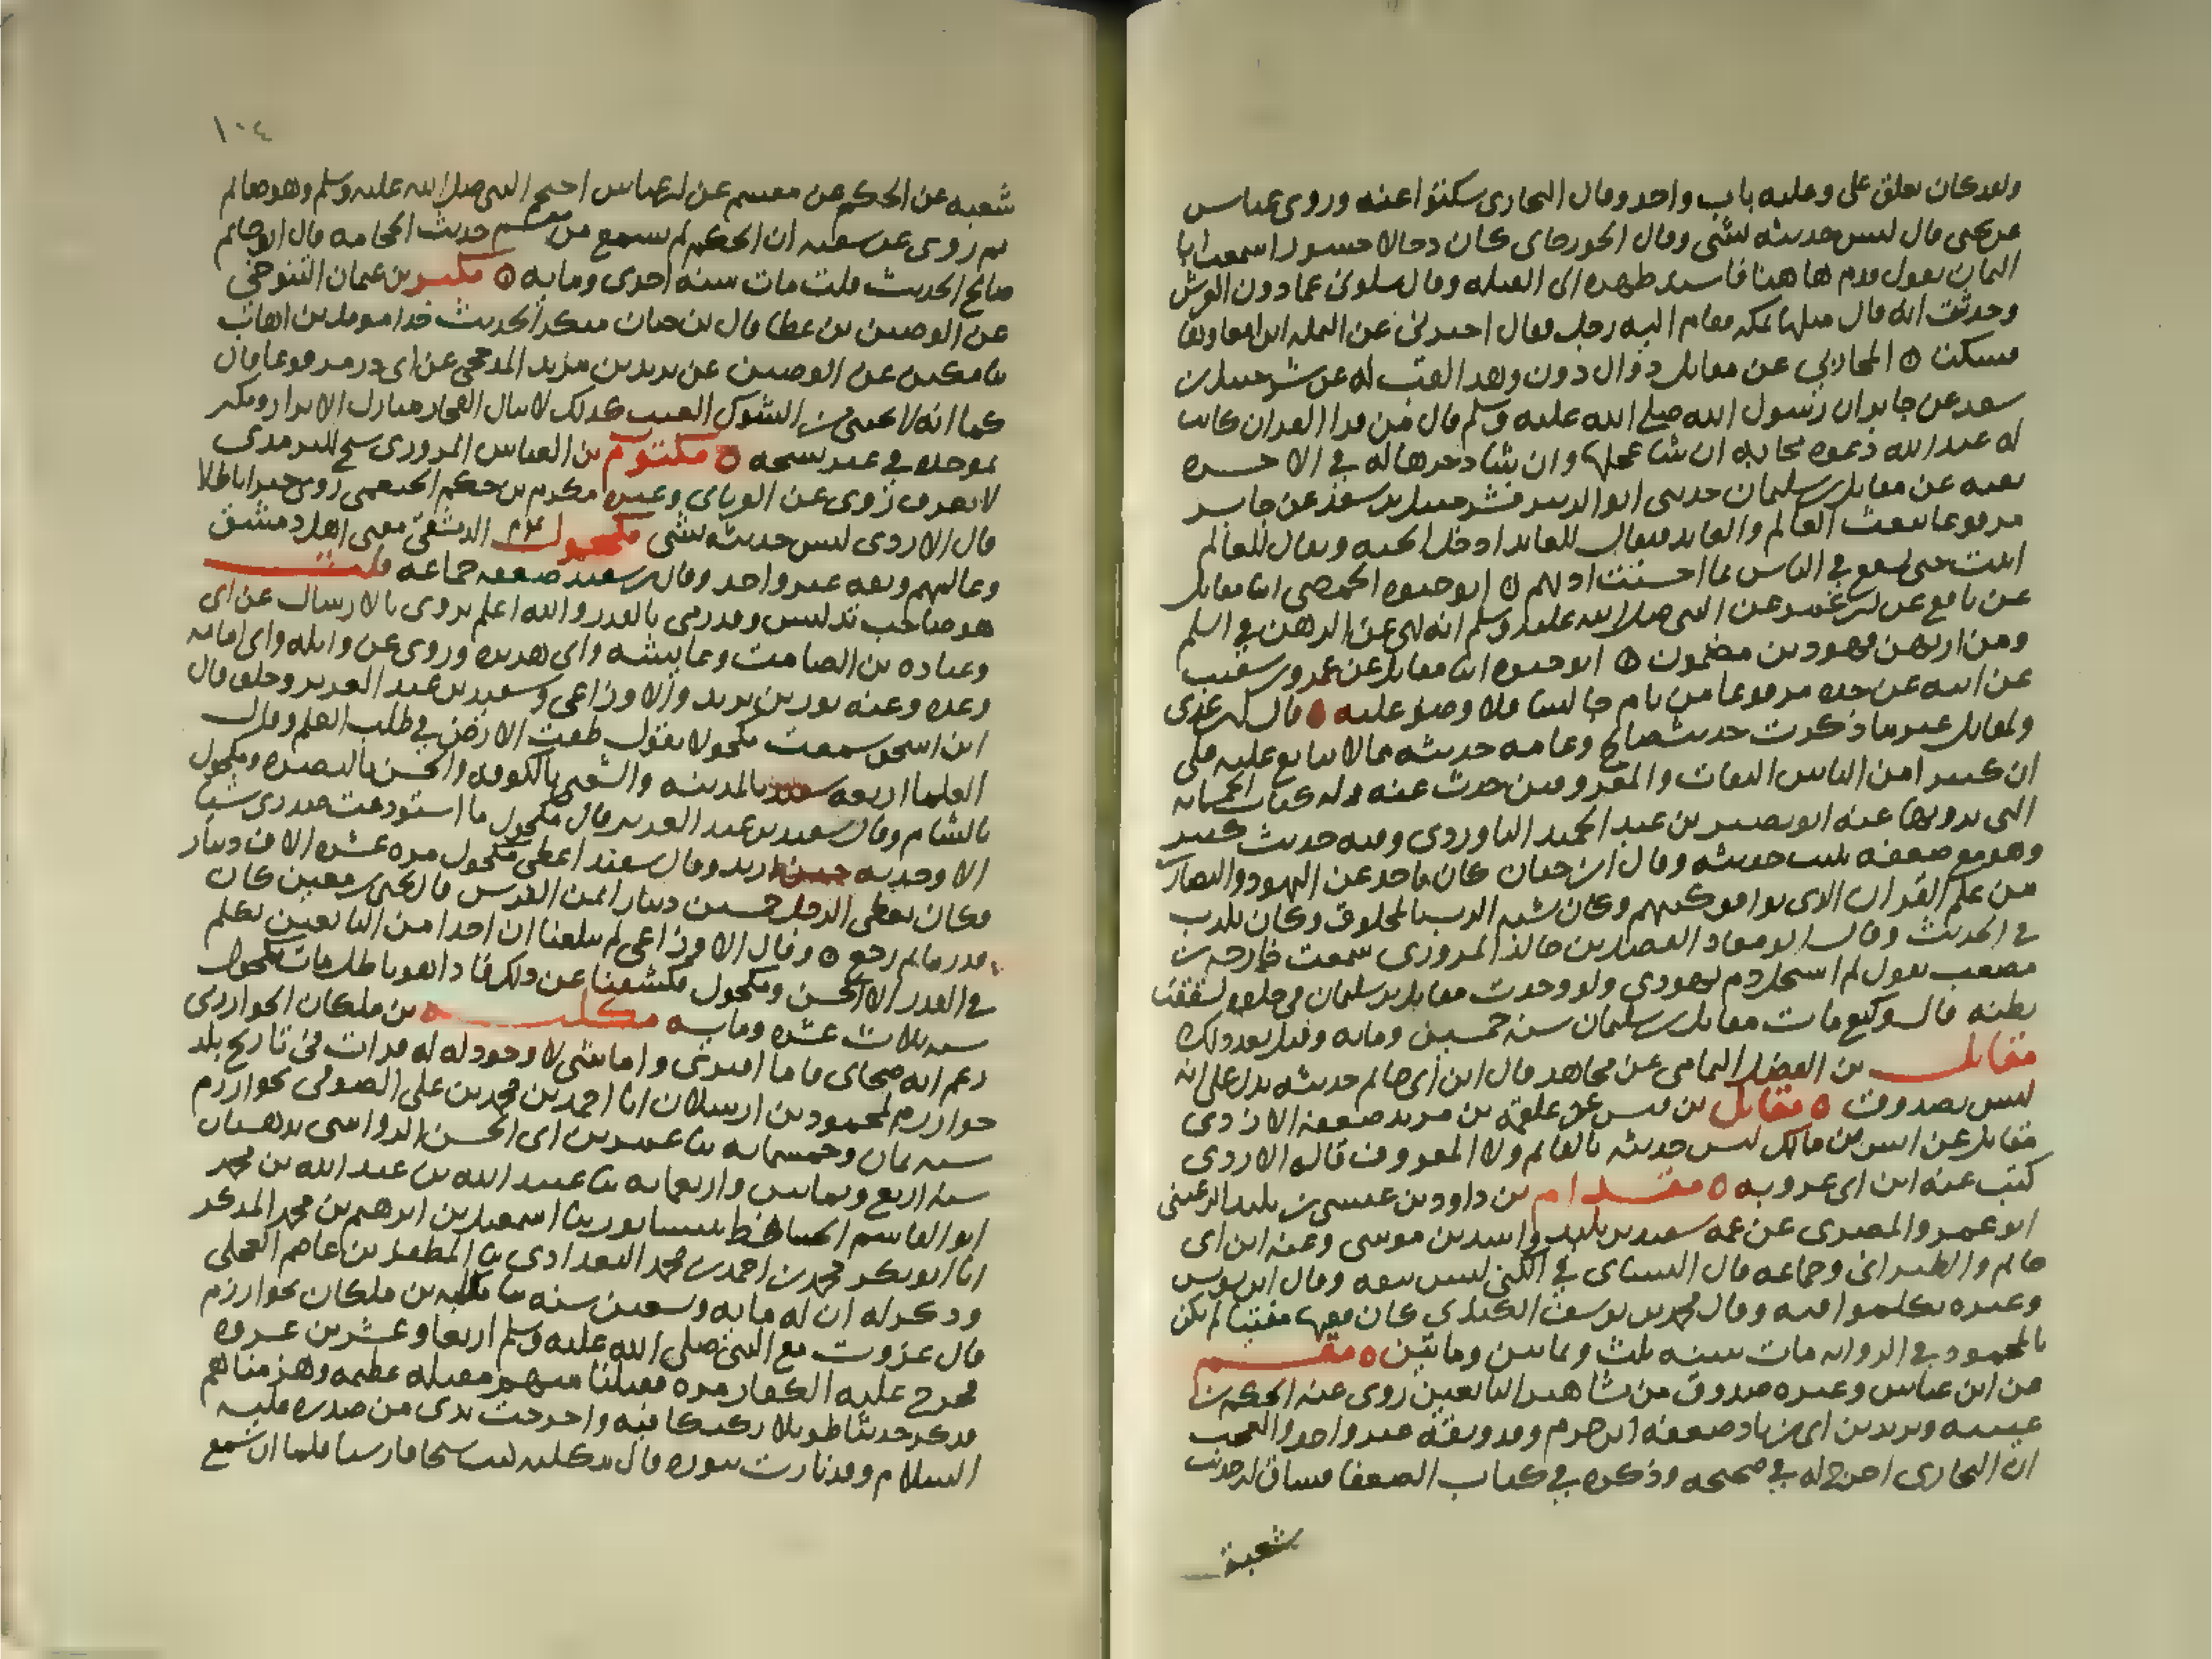 ولقد كان يغلق على وعليه باب واحد وقال البخاري سكتوا عنه وروى عباس
عن يحيى قال ليس حديثه بشي وقال الجوزجاي كان دجالا جسورا سمعت ابا
اليمان يقول قدم هاهنا فاسند ظهره الى القبله وقال سلوني عما دون العرش
وحدثت انه قال مثلها بمكه فقام اليه رجل فقال اخبرني عن النمله اين امعاوها
فسكت ٥ المحاربي عن مقاتل دوال دون وهدا لقب له عن شرحبيل بن
سعد عن جابر ان رسول الله صلى الله عليه وسلم قال من قرا القران كانت
له عند الله دعوه مجابه ان شا عجلها وان شا دخرها له في الاخره
بقيه عن مقاتل بن سليمان حدثني ابو الزبير وشرحبيل بن سعد عن جابر
مرفوعا يبعث العالم والعابد فيقال للعابد ادخل الجنه ويقال للعالم
اثبت حتى تشفع في الناس بما احسنت ادبهم ٥ ابو حيوه الحمصي ثنا مقاتل
عن نافع عن ابن عمر عن النبي صلى الله عليه وسلم انه نهى عن الرهن في السلم
ومن ارتهن فهو دين مضمون ٥ ابو حيوه ثنا مقاتل عن عمرو بن شعيب
عن ابيه عن جده مرفوعا من نام جالسا فلا وضو عليه ٥ قال ابن عدي
ولمقاتل غير ما ذكرت حديث صالح وعامه حديثه مما لا يتابع عليه على
ان كثيرا من الناس الثقات والمعروفين حدث عنه وله كتاب الخمسمايه
التي يرويها عنه ابو نصير بن عبد الحميد الباوردي وفيه حديث كثير
وهو مع ضعفه يكتب حديثه وقال ابن حبان كان ياخذ عن اليهود والنصارى
من علم القران الذي يوافق كتبهم وكان يشبه الرب بالمخلوق وكان يكذب
في الحديث وقال ابو معاد الفضل بن خالد المروزي سمعت خارجه بن
مصعب يقول لم استحل دم يهودي ولو وجدت مقاتل بن سليمان في خلوه لشققت
بطنه قال وكيع مات مقاتل بن سليمان سنه خمسين ومايه وقيل بعد ذلك
مقاتل بن الفضل اليمامي عن مجاهد قال ابن ابي حاتم حديثه يدل على انه
ليس بصدوق ٥ مقاتل بن قيس عن علقمه بن مرثد ضعفه الازدي
مقاتل عن انس بن مالك ليس حديثه بالقايم ولا المعروف قاله الازدي
كتب عنه ابن ابي عروبه ٥ مقدام بن داود بن عيسى بن تليد الرعيني
ابو عمرو المصري عن عمه سعيد بن تليد واسد بن موسى وعنه ابن ابي
حاتم والطبراني وجماعه قال النساي في الكنى ليس بثقه وقال ابن يونس
وغيره تكلموا فيه وقال محمد بن يوسف الكندي كان فقيها مفتيا لم يكن
بالمحمود في الروايه مات سنه ثلث وثمانين ومايتين ٥ مقسم
عن ابن عباس وغيره صدوق من مشاهير التابعين روى عنه الحكم بن
عتيبه ويزيد بن ابي زياد ضعفه ابن حزم وقد وثقه غير واحد والعجب
ان البخاري اخرج له في صحيحه وذكره في كتاب الضعفا فساق له حديث
شعبة
١٠٤
شعبه عن الحكم عن مقسم عن ابن عباس احتجم النبي صلى الله عليه وسلم وهو صايم
ثم روى عن شعبه ان الحكم لم يسمع من مقسم حديث الحجامه قال ابو حاتم
صالح الحديث قلت مات سنه احدى ومايه ٥ مكبر بن عثمان التنوخي
عن الوضين بن عطا قال بن حبان منكر الحديث جدا مومل بن اهاب
ثنا مكبر عن الوضين عن يزيد بن مزيد المدحجي عن ابي در مرفوعا قال
كما انه لا يجتنى من الشوك العنب كدلك لا ينال الفجار منازل الابرار ومكبر
بموحده في غير نسخه ٥ مكتوم بن العباس المروزي شيخ للترمدي
لا يعرف روى عن الفريابي وغيره مكرم بن حكيم الخثعمي روى خبرا باطلا
قال الازدي ليس حديثه بشي مكحول الدمشقي مفتي اهل دمشق
وعالمهم وثقه غير واحد وقال بن سعد ضعفه جماعه قلت
هو صاحب تدليس وقد رمي بالقدر والله اعلم يروي بالارسال عن ابي
وعباده بن الصامت وعايشه وابي هريره وروى عن واثله وابي امامه
وعده وعنه ثور بن يزيد والاوزاعي وسعيد بن عبد العزيز وخلق قال
ابن اسحق سمعت مكحولا يقول طفت الارض في طلب العلم وقال
العلما اربعه سعيد بالمدينه والشعبي بالكوفه والحسن بالبصره ومكحول
بالشام وقال سعيد بن عبد العزيز قال مكحول ما استودعت صدري شيا
الا وجدته حين اريد وقال سعيد اعطي مكحول مره عشره الاف دينار
فكان يعطي الرجل خمسين دينارا ثمن الفرس قال يحيى بن معين كان
قدريا ثم رجع ٥ وقال الاوزاعي لم يبلغنا ان احدا من التابعين تكلم
في القدر الا الحسن ومكحول فكشفنا عن ذلك فاذا هو باطل مات مكحول
سنه ثلاث عشره ومايه مكلبه بن ملكان الخوارزمي
زعم انه صحابي فاما افترى واما شي لا وجود له قرات في تاريخ بلد
خوارزم لمحمود بن ارسلان انا احمد بن محمد بن علي الصوفي بخوارزم
سنه ثمان وخمسمايه ثنا عمر بن ابي الحسن الرواسي بدهستان
سنه اربع وثمانين واربعمايه ثنا عبيد الله بن عبد الله بن محمد
ابو القاسم الحافظ بنيسابور ثنا اسمعيل بن ابرهيم بن محمد المدكر
انا ابو بكر محمد بن احمد بن محمد البغدادي ثنا المظفر بن عاصم العجلي
ودكر له ان له مايه وسبعين سنه ثنا مكلبه بن ملكان بخوارزم
قال غزوت مع النبي صلى الله عليه وسلم اربعا وعشرين غزوه
فخرج عليه الكفار مره فقتلنا منهم مقتله عظيمه وهزمناهم
فدكر حديثا طويلا ركيكا فيه واخرجت يدي من صدره عليه
السلام وقد نارت بنوره قال مكلبه لست شيخا فارسيا فلما ان سمع